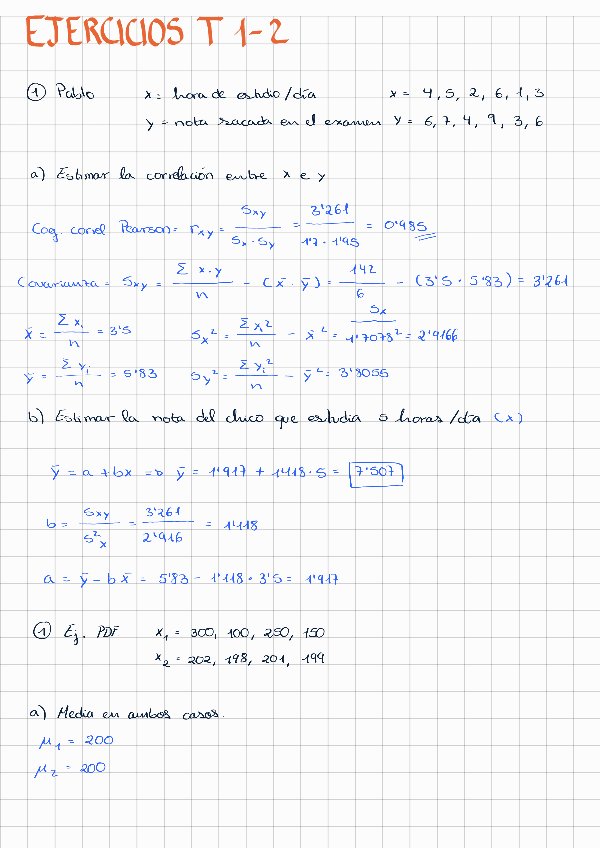 EJERCICIOS T 1-2
① Pablo x = hora de estudio/día x = 4, 5, 2, 6, 1, 3
y = nota sacada en el examen y = 6, 7, 4, 9, 3, 6
a) Estimar la correlación entre x e y
Coef. correl Pearson = rxy = Sxy / (Sx · Sy) = 3'261 / (1'7 · 1'95) = 0'985
Covarianza = Sxy = Σ x·y / n - (x̄ · ȳ) = 142 / 6 - (3'5 · 5'83) = 3'261
x̄ = Σ xi / n = 3'5 Sx² = Σ xi² / n - x̄² = 1'7078² = 2'9166 Sx
ȳ = Σ yi / n = 5'83 Sy² = Σ yi² / n - ȳ² = 3'8055
b) Estimar la nota del chico que estudia 5 horas/día (x)
ȳ = a + bx => ȳ = 1'917 + 1'118 · 5 = 7'507
b = Sxy / S²x = 3'261 / 2'916 = 1'118
a = ȳ - b x̄ = 5'83 - 1'118 · 3'5 = 1'917
① Ej. PDF x₁ = 300, 100, 250, 150
x₂ = 202, 198, 201, 199
a) Media en ambos casos.
μ₁ = 200
μ₂ = 200